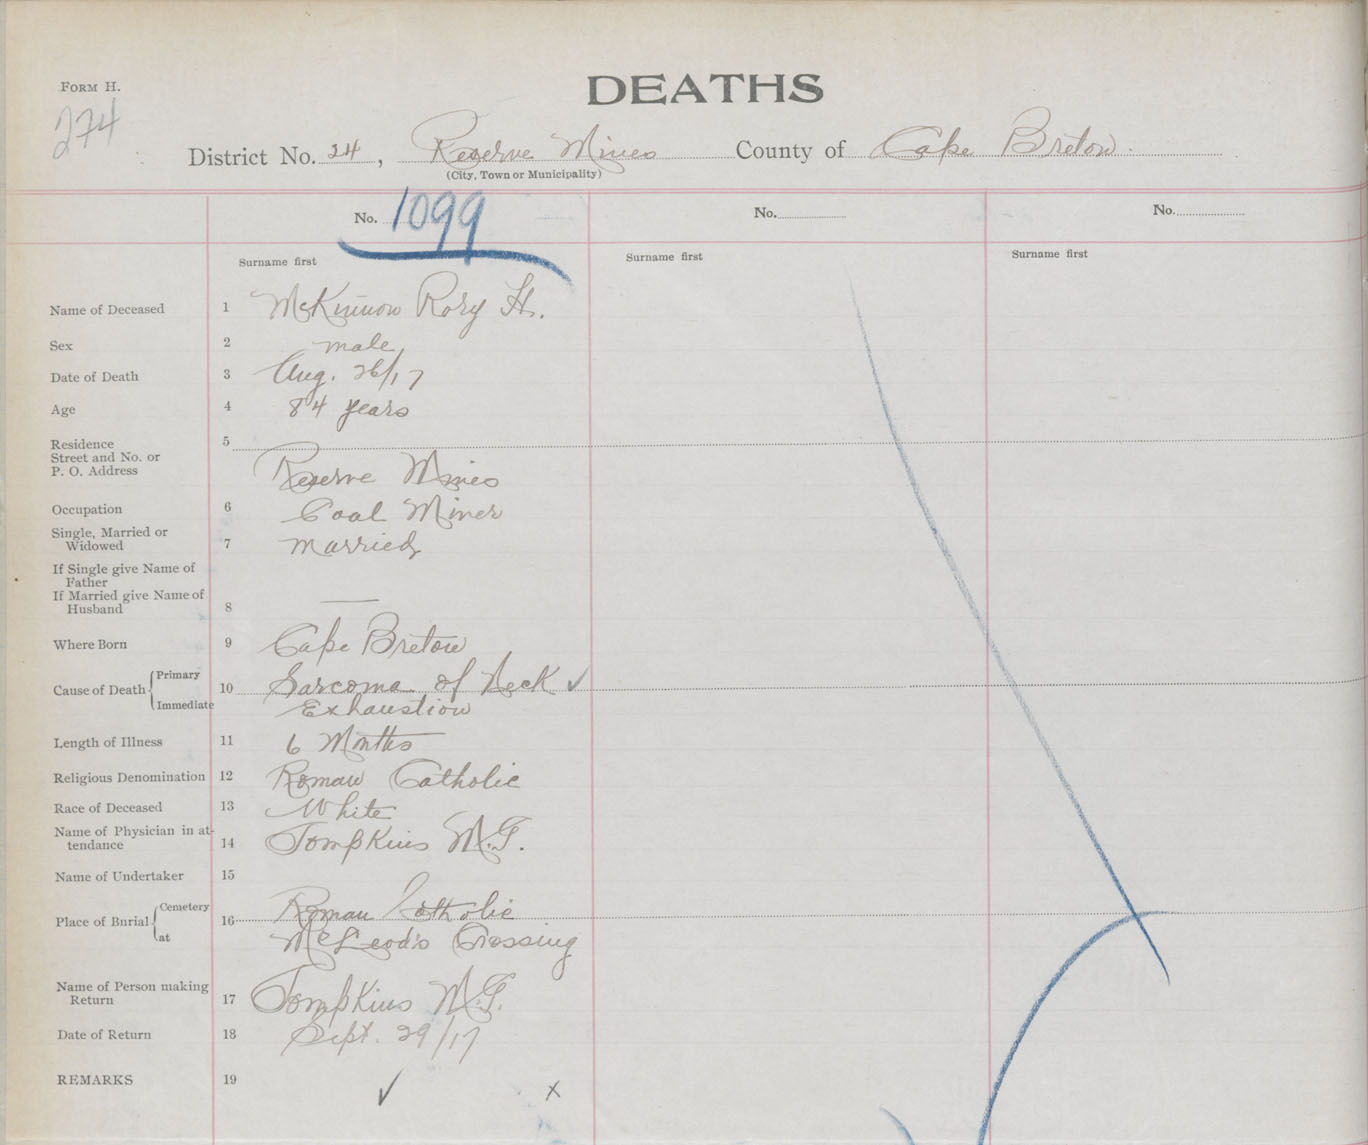 FORM H.
DEATHS
274
District No. 24, Reserve Mines County of Cape Breton.
(City, Town or Municipality)
No. 1099 No. No.
Surname first Surname first Surname first
Name of Deceased 1 McKinnon Rory H.
Sex 2 male
Date of Death 3 Aug. 26/17
Age 4 84 years
Residence 5
Street and No. or
P. O. Address Reserve Mines
Occupation 6 Coal Miner
Single, Married or
Widowed 7 Married
If Single give Name of
Father
If Married give Name of
Husband 8 —
Where Born 9 Cape Breton
Cause of Death Primary 10 Sarcoma of Neck ✓
Immediate Exhaustion
Length of Illness 11 6 Months
Religious Denomination 12 Roman Catholic
Race of Deceased 13 White
Name of Physician in at-
tendance 14 Tompkins M.F.
Name of Undertaker 15
Place of Burial Cemetery 16 Roman Catholic
at McLeod's Crossing
Name of Person making
Return 17 Tompkins M.F.
Date of Return 18 Sept. 29/17
REMARKS 19 ✓ x